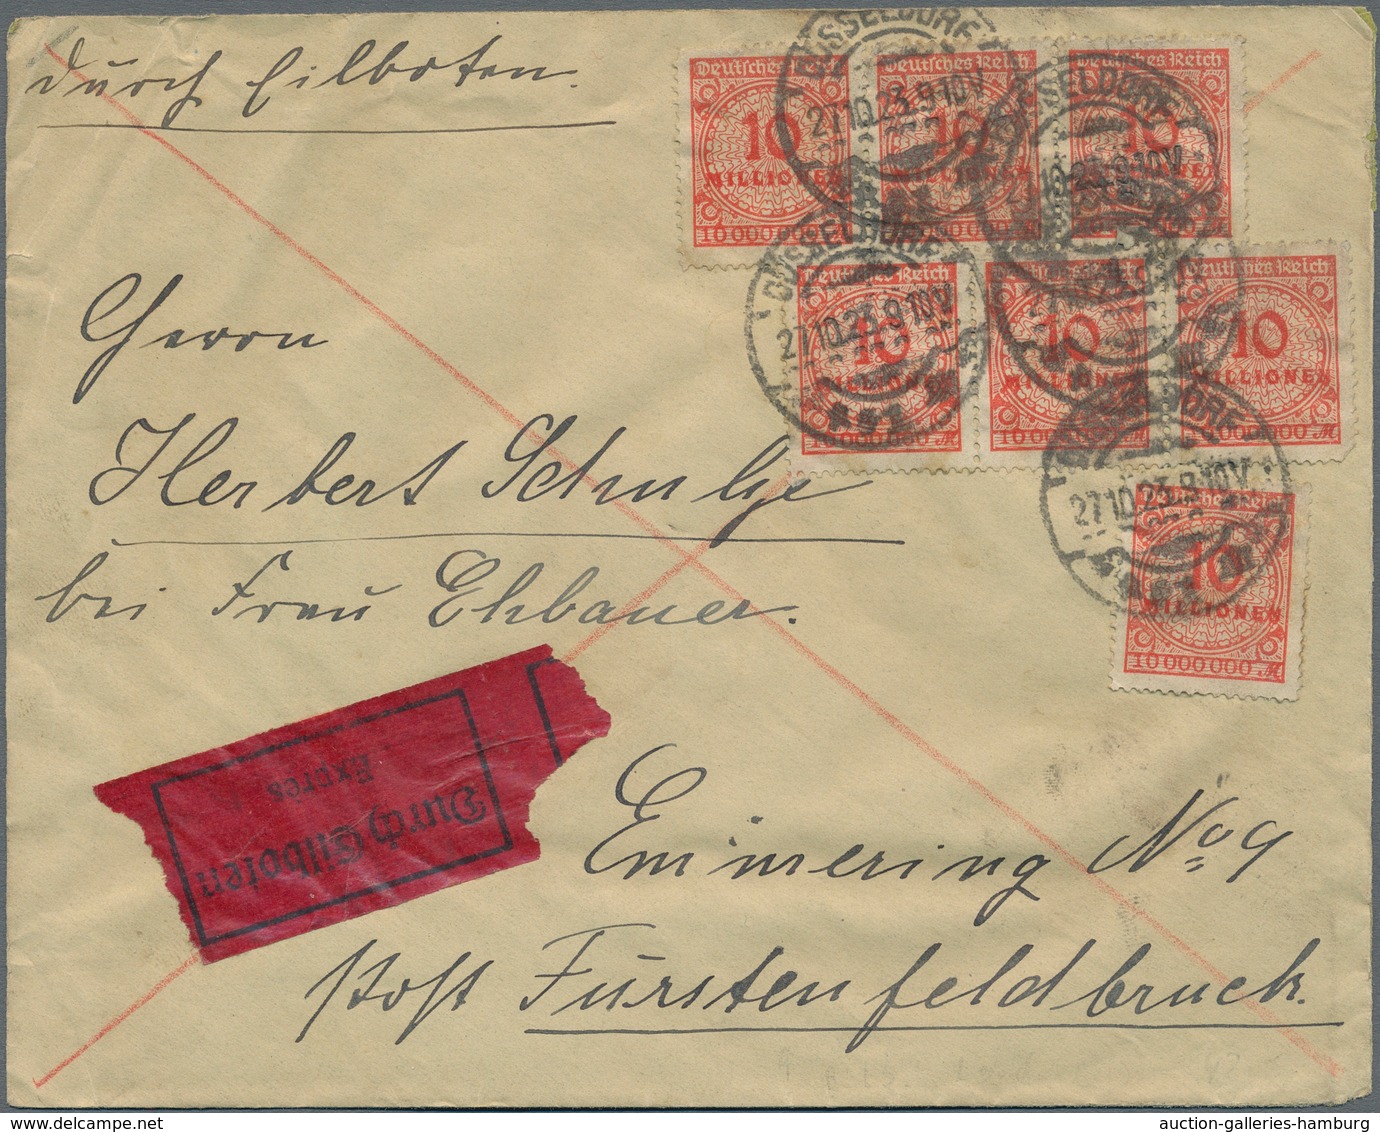 durch Eilboten.
Deutsches Reich
10
MILLIONEN
10000000
DÜSSELDORF
27.10.23.9-10V
Deutsches Reich
10
MILLIONEN
10000000
Deutsches Reich
10
MILLIONEN
Deutsches Reich
10
MILLIONEN
10000000 M
DÜSSELDORF
27.10.23.9-10V
Deutsches Reich
10
MILLIONEN
10000000
Deutsches Reich
10
MILLIONEN
10000000 M
Deutsches Reich
10
MILLIONEN
10000000 M
27.10.23.9-10V
Herrn
Herbert Schulze
bei Frau Ehbauer.
Durch Eilboten
Exprès
Emmering No 9
Post Fürstenfeldbruck.
auction-galleries-hamburg